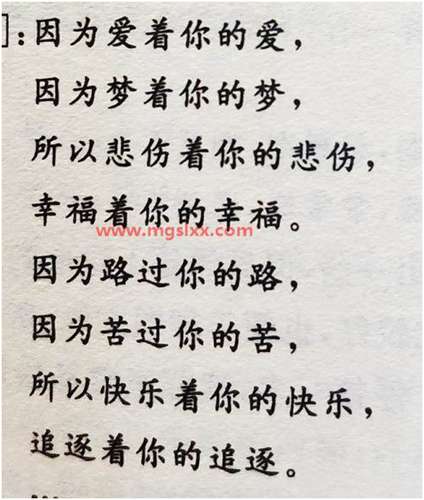 ]:因为爱着你的爱，
因为梦着你的梦，
所以悲伤着你的悲伤，
幸福着你的幸福。
www.mgslxx.com
因为路过你的路，
因为苦过你的苦，
所以快乐着你的快乐，
追逐着你的追逐。